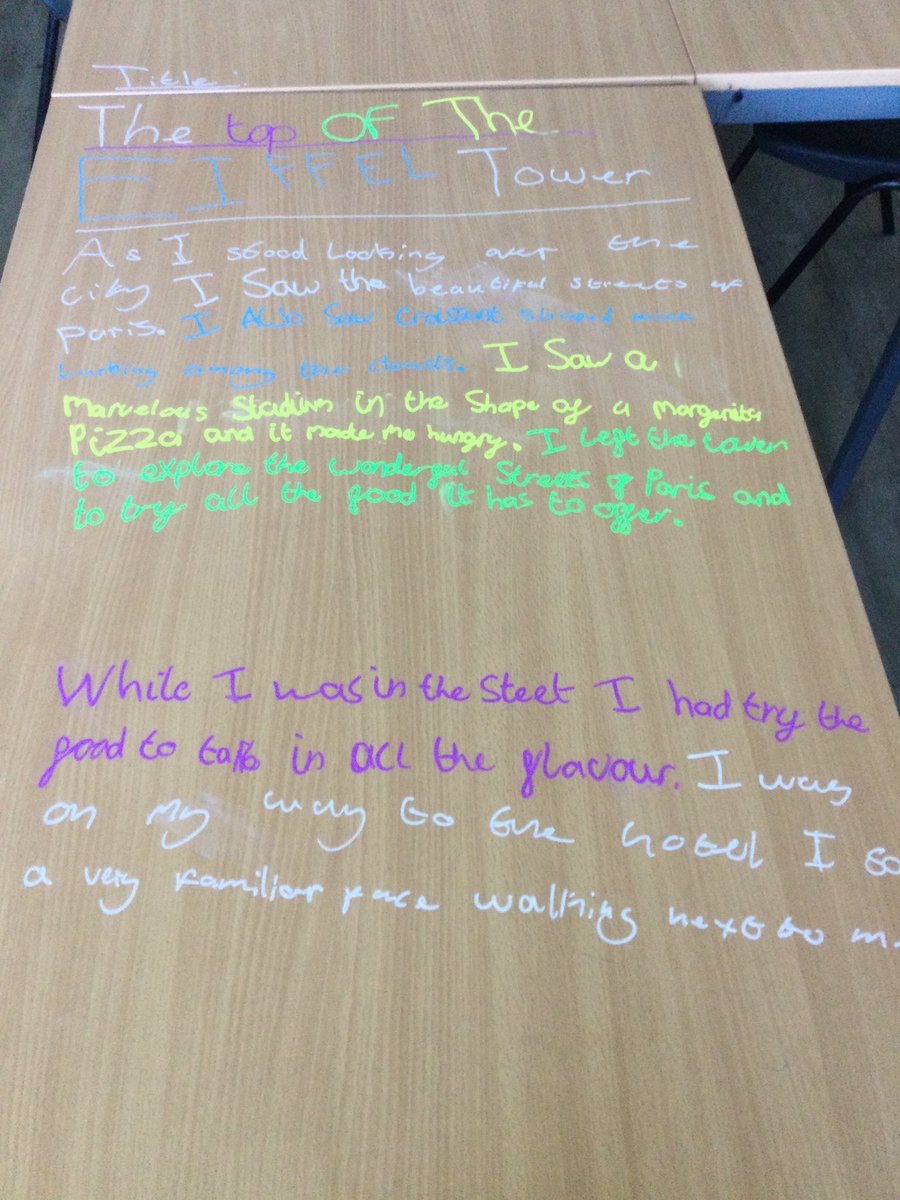 Title:
The top OF The
EIFFEL Tower
As I stood Looking over the
city I Saw the beautiful streets of
Paris. I ALSO Saw Croissant shaped
Lurking among the clouds. I Saw a
Marvelous Stadium in the Shape of a Margerita
Pizza and it made me hungry. I left the tower
to explore the wonderful Streets of Paris and
to try all the food its has to offer.
While I was in the Steet I had try the
food to take in all the flavour. I way
on my way to the hotel I sa
a very familier face walking next to m